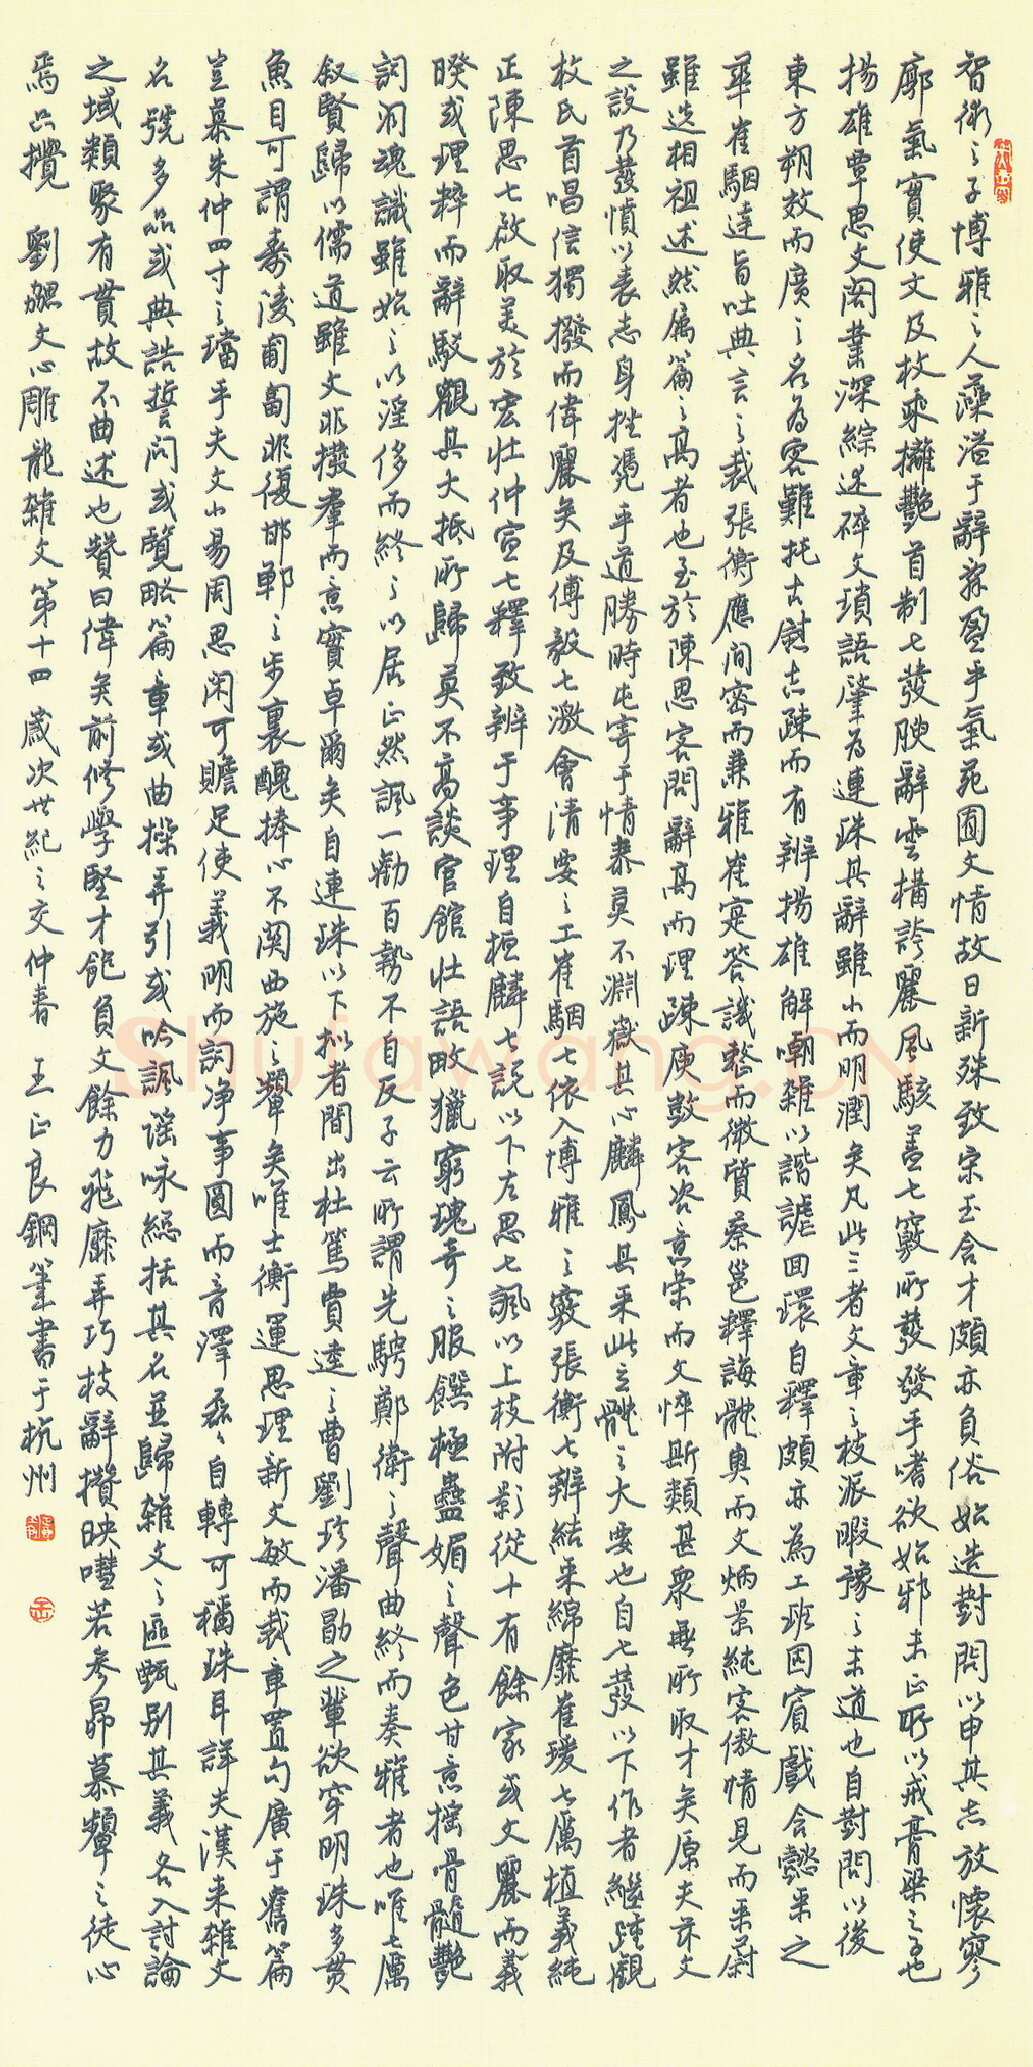 智術之子博雅之人藻溢于辭辭盈乎氣苑囿文情故日新殊致宋玉含才頗亦負俗始造對問以申其志放懷寥
廓氣實使文及枚乘攡艷首制七發腴辭雲構誇麗風駭蓋七竅所發發乎嗜欲始邪末正所以戒膏粱之子也
揚雄覃思文闊業深綜述碎文瑣語肇為連珠其辭雖小而明潤矣凡此三者文章之枝派暇豫之末造也自對問以後
東方朔效而廣之名為客難托古慰志疎而有辨揚雄解嘲雜以諧謔回環自釋頗亦為工班固賓戲含懿采之
華崔駰達旨吐典言之裁張衡應間密而兼雅崔寔答譏整而微質蔡邕釋誨體奧而文炳景純客傲情見而采蔚
雖迭相祖述然屬篇之高者也至於陳思客問辭高而理疎庾敳客咨意榮而文悴斯類甚眾無所取才矣原夫茲文
之設乃發憤以表志身挫憑乎道勝時屯寄于情泰莫不淵嶽其心麟鳳其采此立體之大要也自七發以下作者繼踵觀
枚氏首唱信獨撥而偉麗矣及傅毅七激會清要之工崔駰七依入博雅之窾張衡七辨結采綿靡崔瑗七厲植義純
正陳思七啟取美於宏壯仲宣七釋致辨于事理自桓麟七說以下左思七諷以上枝附影從十有餘家或文麗而義
暌或理粹而辭駁觀其大抵所歸莫不高談宮館壯語畋獵窮瑰奇之服饌極蠱媚之聲色甘意搖骨髓艷
詞洞魂識雖始之以淫侈而終之以居正然諷一勸百勢不自反子云所謂先騁鄭衛之聲曲終而奏雅者也唯七厲
叙賢歸以儒道雖文非撥羣而意實卓爾矣自連珠以下拟者間出杜篤賈逵之曹劉珍潘勖之輩欲穿明珠多贯
魚目可謂壽陵匍匐非復邯鄲之步裏醜捧心不関西施之颦矣唯士衡運思理新文敏而裁章置句廣于舊篇
豈慕朱仲四寸之璫乎夫文小易周思闲可贍足使義明而詞净事圓而音澤磊磊自轉可稱珠耳詳夫漢来雜文
名號多品或典誥誓问或覽略篇章或曲操弄引或吟諷谣咏總括其名並歸雜文之區甄别其義各入討論
之域類聚有貫故不曲述也贊曰偉矣前修學堅才飽負文餘力飛靡弄巧枝辭攢映嘒若参昴慕颦之徒心
焉只攪 劉勰文心雕龍雜文第十四 歲次世紀之交仲春 王正良鋼筆書于杭州
Shufawang.CN